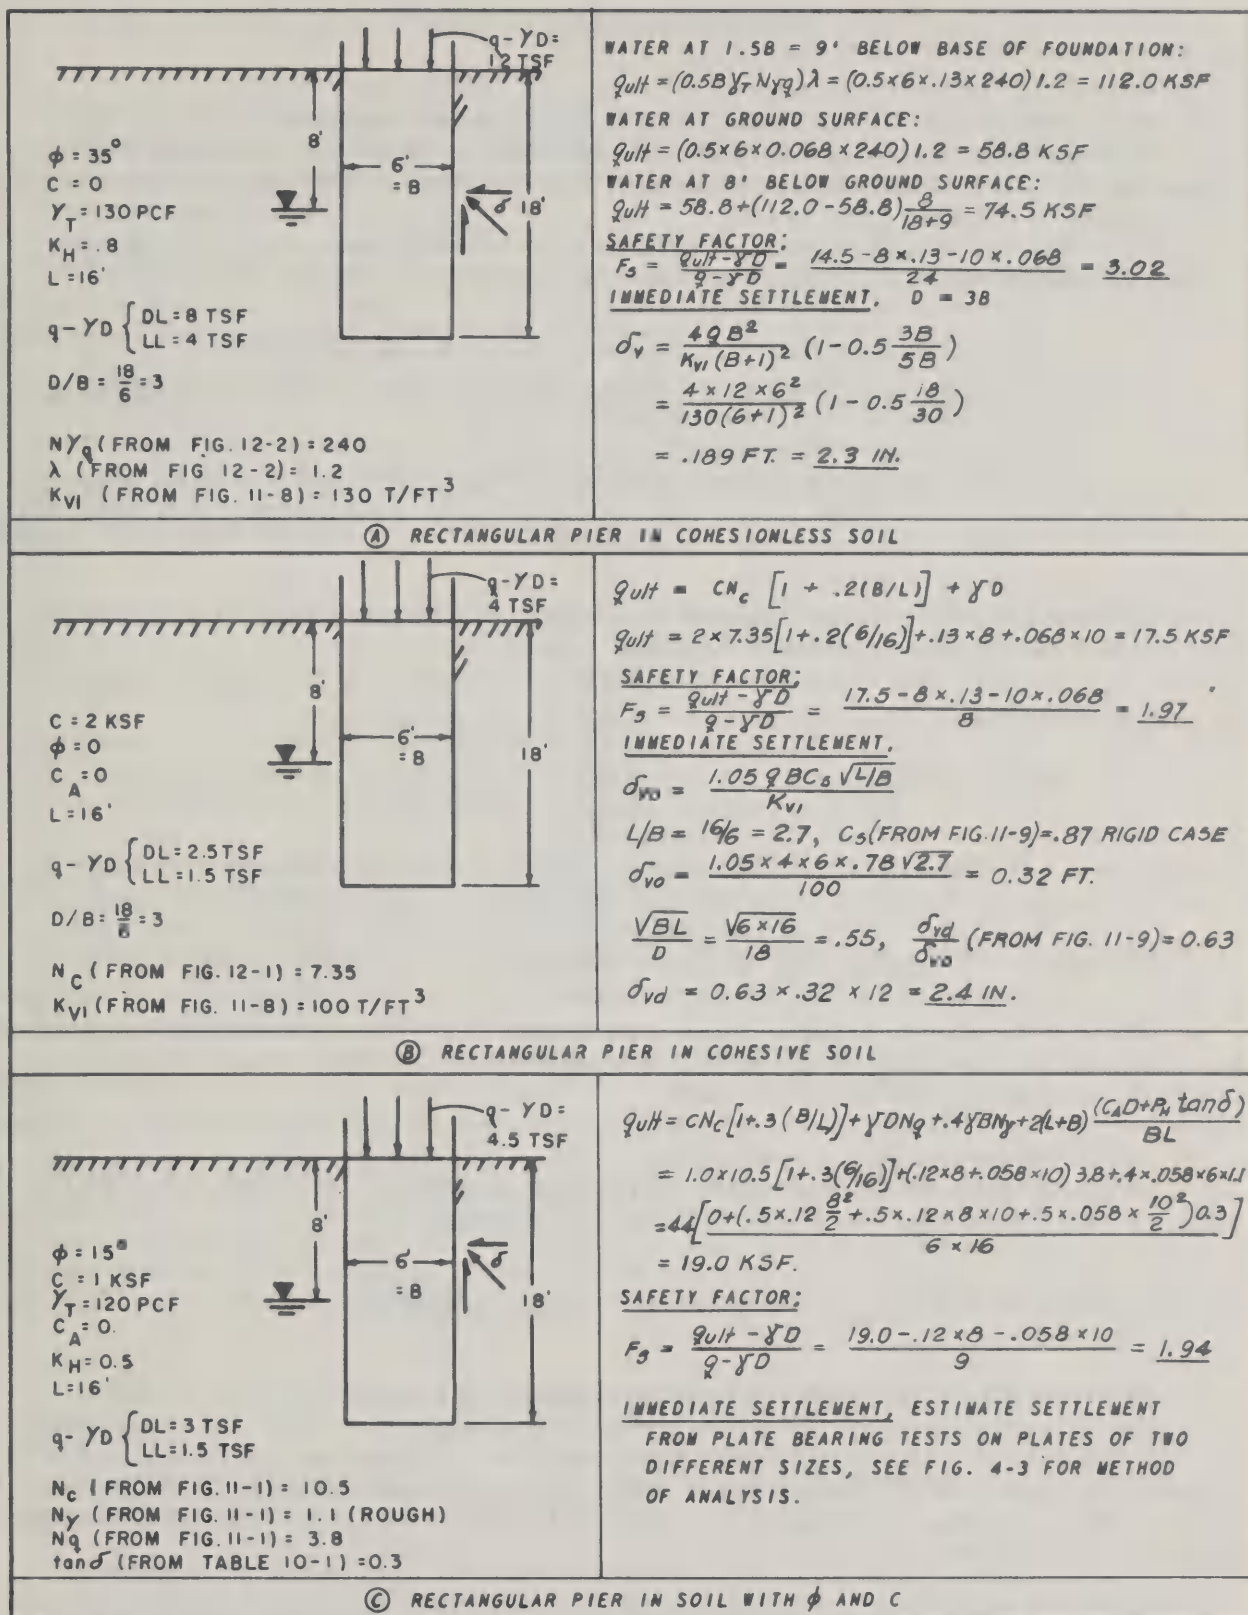 q-γD=
12 TSF
8'
6'
= B
18'
δ
φ = 35°
C = 0
γT = 130 PCF
KH = .8
L = 16'
q-γD { DL = 8 TSF
LL = 4 TSF
D/B = 18/6 = 3
Nγq (FROM FIG. 12-2) = 240
λ (FROM FIG 12-2) = 1.2
KVI (FROM FIG. 11-8) = 130 T/FT³
WATER AT 1.5B = 9' BELOW BASE OF FOUNDATION:
qult = (0.5BγT Nγq)λ = (0.5×6×.13×240) 1.2 = 112.0 KSF
WATER AT GROUND SURFACE:
qult = (0.5×6×0.068×240) 1.2 = 58.8 KSF
WATER AT 8' BELOW GROUND SURFACE:
qult = 58.8+(112.0-58.8) 8/(18+9) = 74.5 KSF
SAFETY FACTOR:
Fs = (qult-γD)/(q-γD) = (14.5-8×.13-10×.068)/24 = 3.02
IMMEDIATE SETTLEMENT, D = 3B
δv = 4QB²/(KVI(B+1)²) (1-0.5 3B/5B)
= 4×12×6²/(130(6+1)²) (1-0.5 18/30)
= .189 FT. = 2.3 IN.
Ⓐ RECTANGULAR PIER IN COHESIONLESS SOIL
q-γD=
4 TSF
8'
6'
= B
18'
C = 2 KSF
φ = 0
CA = 0
L = 16'
q-γD { DL = 2.5 TSF
LL = 1.5 TSF
D/B = 18/6 = 3
NC (FROM FIG. 12-1) = 7.35
KVI (FROM FIG. 11-8) = 100 T/FT³
qult = CNc [1 + .2(B/L)] + γD
qult = 2×7.35[1+.2(6/16)]+.13×8+.068×10 = 17.5 KSF
SAFETY FACTOR;
Fs = (qult-γD)/(q-γD) = (17.5-8×.13-10×.068)/8 = 1.97
IMMEDIATE SETTLEMENT,
δvo = 1.05 qBCs √L/B / KVI
L/B = 16/6 = 2.7, Cs (FROM FIG. 11-9) = .87 RIGID CASE
δvo = 1.05×4×6×.78 √2.7 / 100 = 0.32 FT.
√BL/D = √6×16/18 = .55, δvd/δvo (FROM FIG. 11-9) = 0.63
δvd = 0.63 × .32 × 12 = 2.4 IN.
Ⓑ RECTANGULAR PIER IN COHESIVE SOIL
q-γD=
4.5 TSF
8'
6
= B
18'
δ
φ = 15°
C = 1 KSF
γT = 120 PCF
CA = 0.
KH = 0.5
L = 16'
q-γD { DL = 3 TSF
LL = 1.5 TSF
Nc (FROM FIG. 11-1) = 10.5
Nγ (FROM FIG. 11-1) = 1.1 (ROUGH)
Nq (FROM FIG. 11-1) = 3.8
tanδ (FROM TABLE 10-1) = 0.3
qult = CNc [1+.3(B/L)] + γDNq + .4γBNγ + 2(L+B) (CAD+PH tanδ)/BL
= 1.0×10.5 [1+.3(6/16)]+(.12×8+.058×10) 3.8+.4×.058×6×1.1
=44[0+(.5×.12 8²/2+.5×.12×8×10+.5×.058×10²/2)0.3 / 6×16]
= 19.0 KSF.
SAFETY FACTOR:
Fs = (qult-γD)/(q-γD) = (19.0-.12×8-.058×10)/9 = 1.94
IMMEDIATE SETTLEMENT, ESTIMATE SETTLEMENT
FROM PLATE BEARING TESTS ON PLATES OF TWO
DIFFERENT SIZES, SEE FIG. 4-3 FOR METHOD
OF ANALYSIS.
Ⓒ RECTANGULAR PIER IN SOIL WITH φ AND C